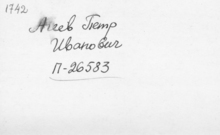 1742
Агеев Петр
Иванович
П-26583